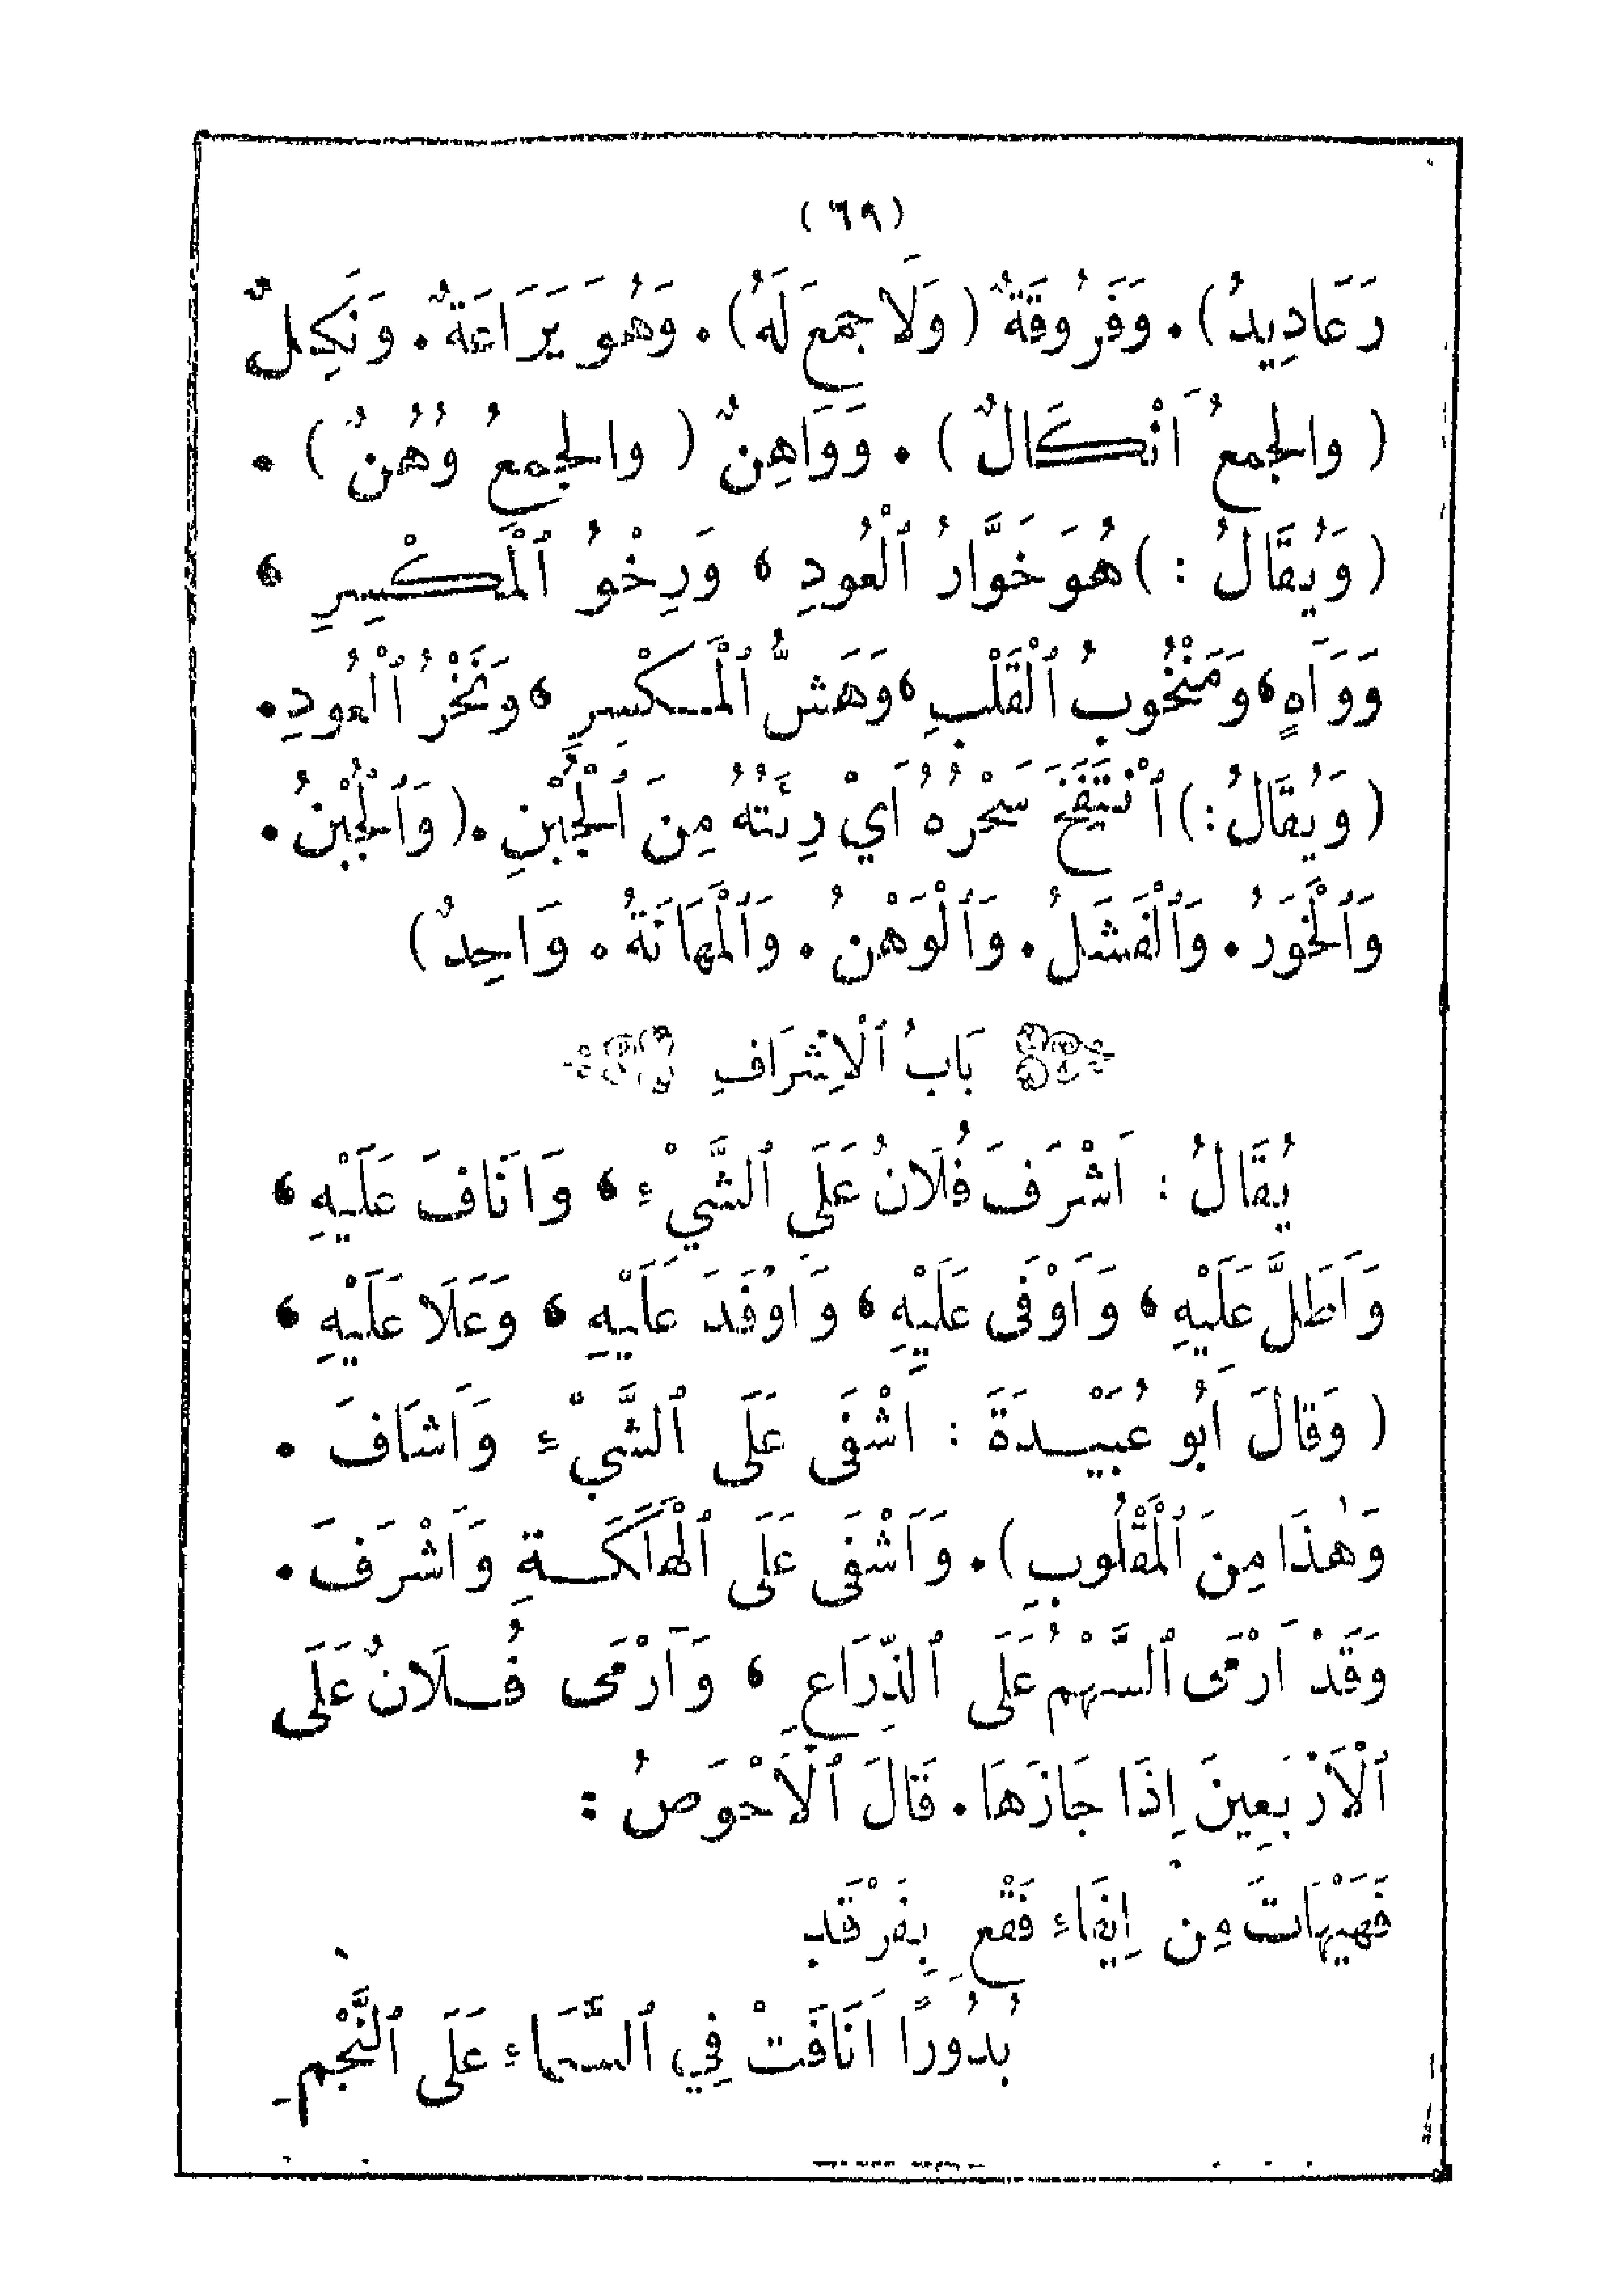 (٦٩)
رَعَادِيدُ). وَفَرُوقَةٌ (وَلَا جَمْعَ لَهُ). وَهُوَ يَرَاعَةٌ. وَنَكِلٌ
(والجمعُ اَنْكَالٌ). وَوَاهِنٌ (والجمعُ وُهُنٌ).
(وَيُقَالُ:) هُوَ خَوَّارُ ٱلْعُودِ، وَرِخْوُ ٱلْمَكْسِرِ،
وَوَاهٍ، وَمَنْخُوبُ ٱلْقَلْبِ، وَهَشُّ ٱلْمَكْسِرِ، وَنَخْرُ ٱلْعُودِ.
(وَيُقَالُ:) ٱنْتَفَخَ سَحْرُهُ اَيْ رِئَتُهُ مِنَ ٱلْجُبْنِ. (وَٱلْجُبْنُ.
وَٱلْخَوَرُ. وَٱلْفَشَلُ. وَٱلْوَهْنُ. وَٱلْمَهَانَةُ. وَاحِدٌ)
بَابُ ٱلْاِشْرَافِ
يُقَالُ: اَشْرَفَ فُلَانٌ عَلَى ٱلشَّيْءِ، وَاَنَافَ عَلَيْهِ،
وَاَطَلَّ عَلَيْهِ، وَاَوْفَى عَلَيْهِ، وَاَوْفَدَ عَلَيْهِ، وَعَلَا عَلَيْهِ،
(وَقَالَ اَبُو عُبَيْدَةَ: اَشْفَى عَلَى ٱلشَّيْءِ وَاَشَافَ.
وَهٰذَا مِنَ ٱلْمَقْلُوبِ). وَاَشْفَى عَلَى ٱلْهَلَكَةِ وَاَشْرَفَ.
وَقَدْ اَرْمَى ٱلسَّهْمُ عَلَى ٱلذِّرَاعِ، وَاَرْمَى فُلَانٌ عَلَى
ٱلْاَرْبَعِينَ اِذَا جَازَهَا. قَالَ ٱلْاَحْوَصُ:
فَهَيْهَاتَ مِن اِيفَاءِ فَقْعٍ بِفَرْقَدٍ
بُدُورًا اَنَافَتْ فِي ٱلسَّمَاءِ عَلَى ٱلنَّجْمِ